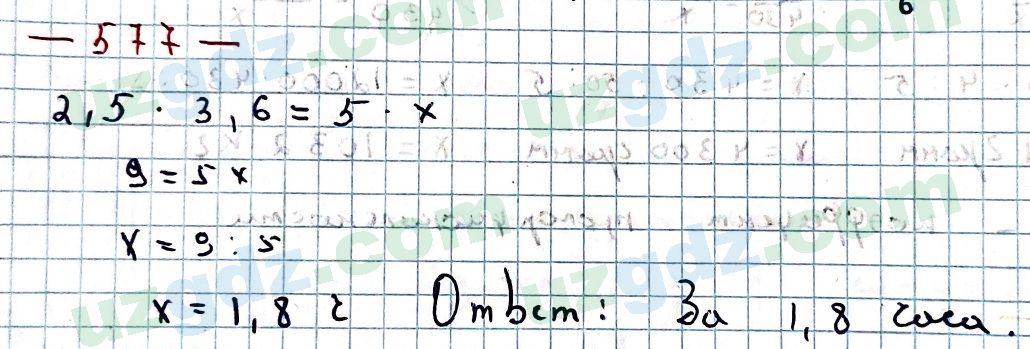 — 577 —
2,5 · 3,6 = 5 · x
9 = 5x
x = 9 : 5
x = 1,8 ч Ответ: За 1,8 часа.
uzgdz.com